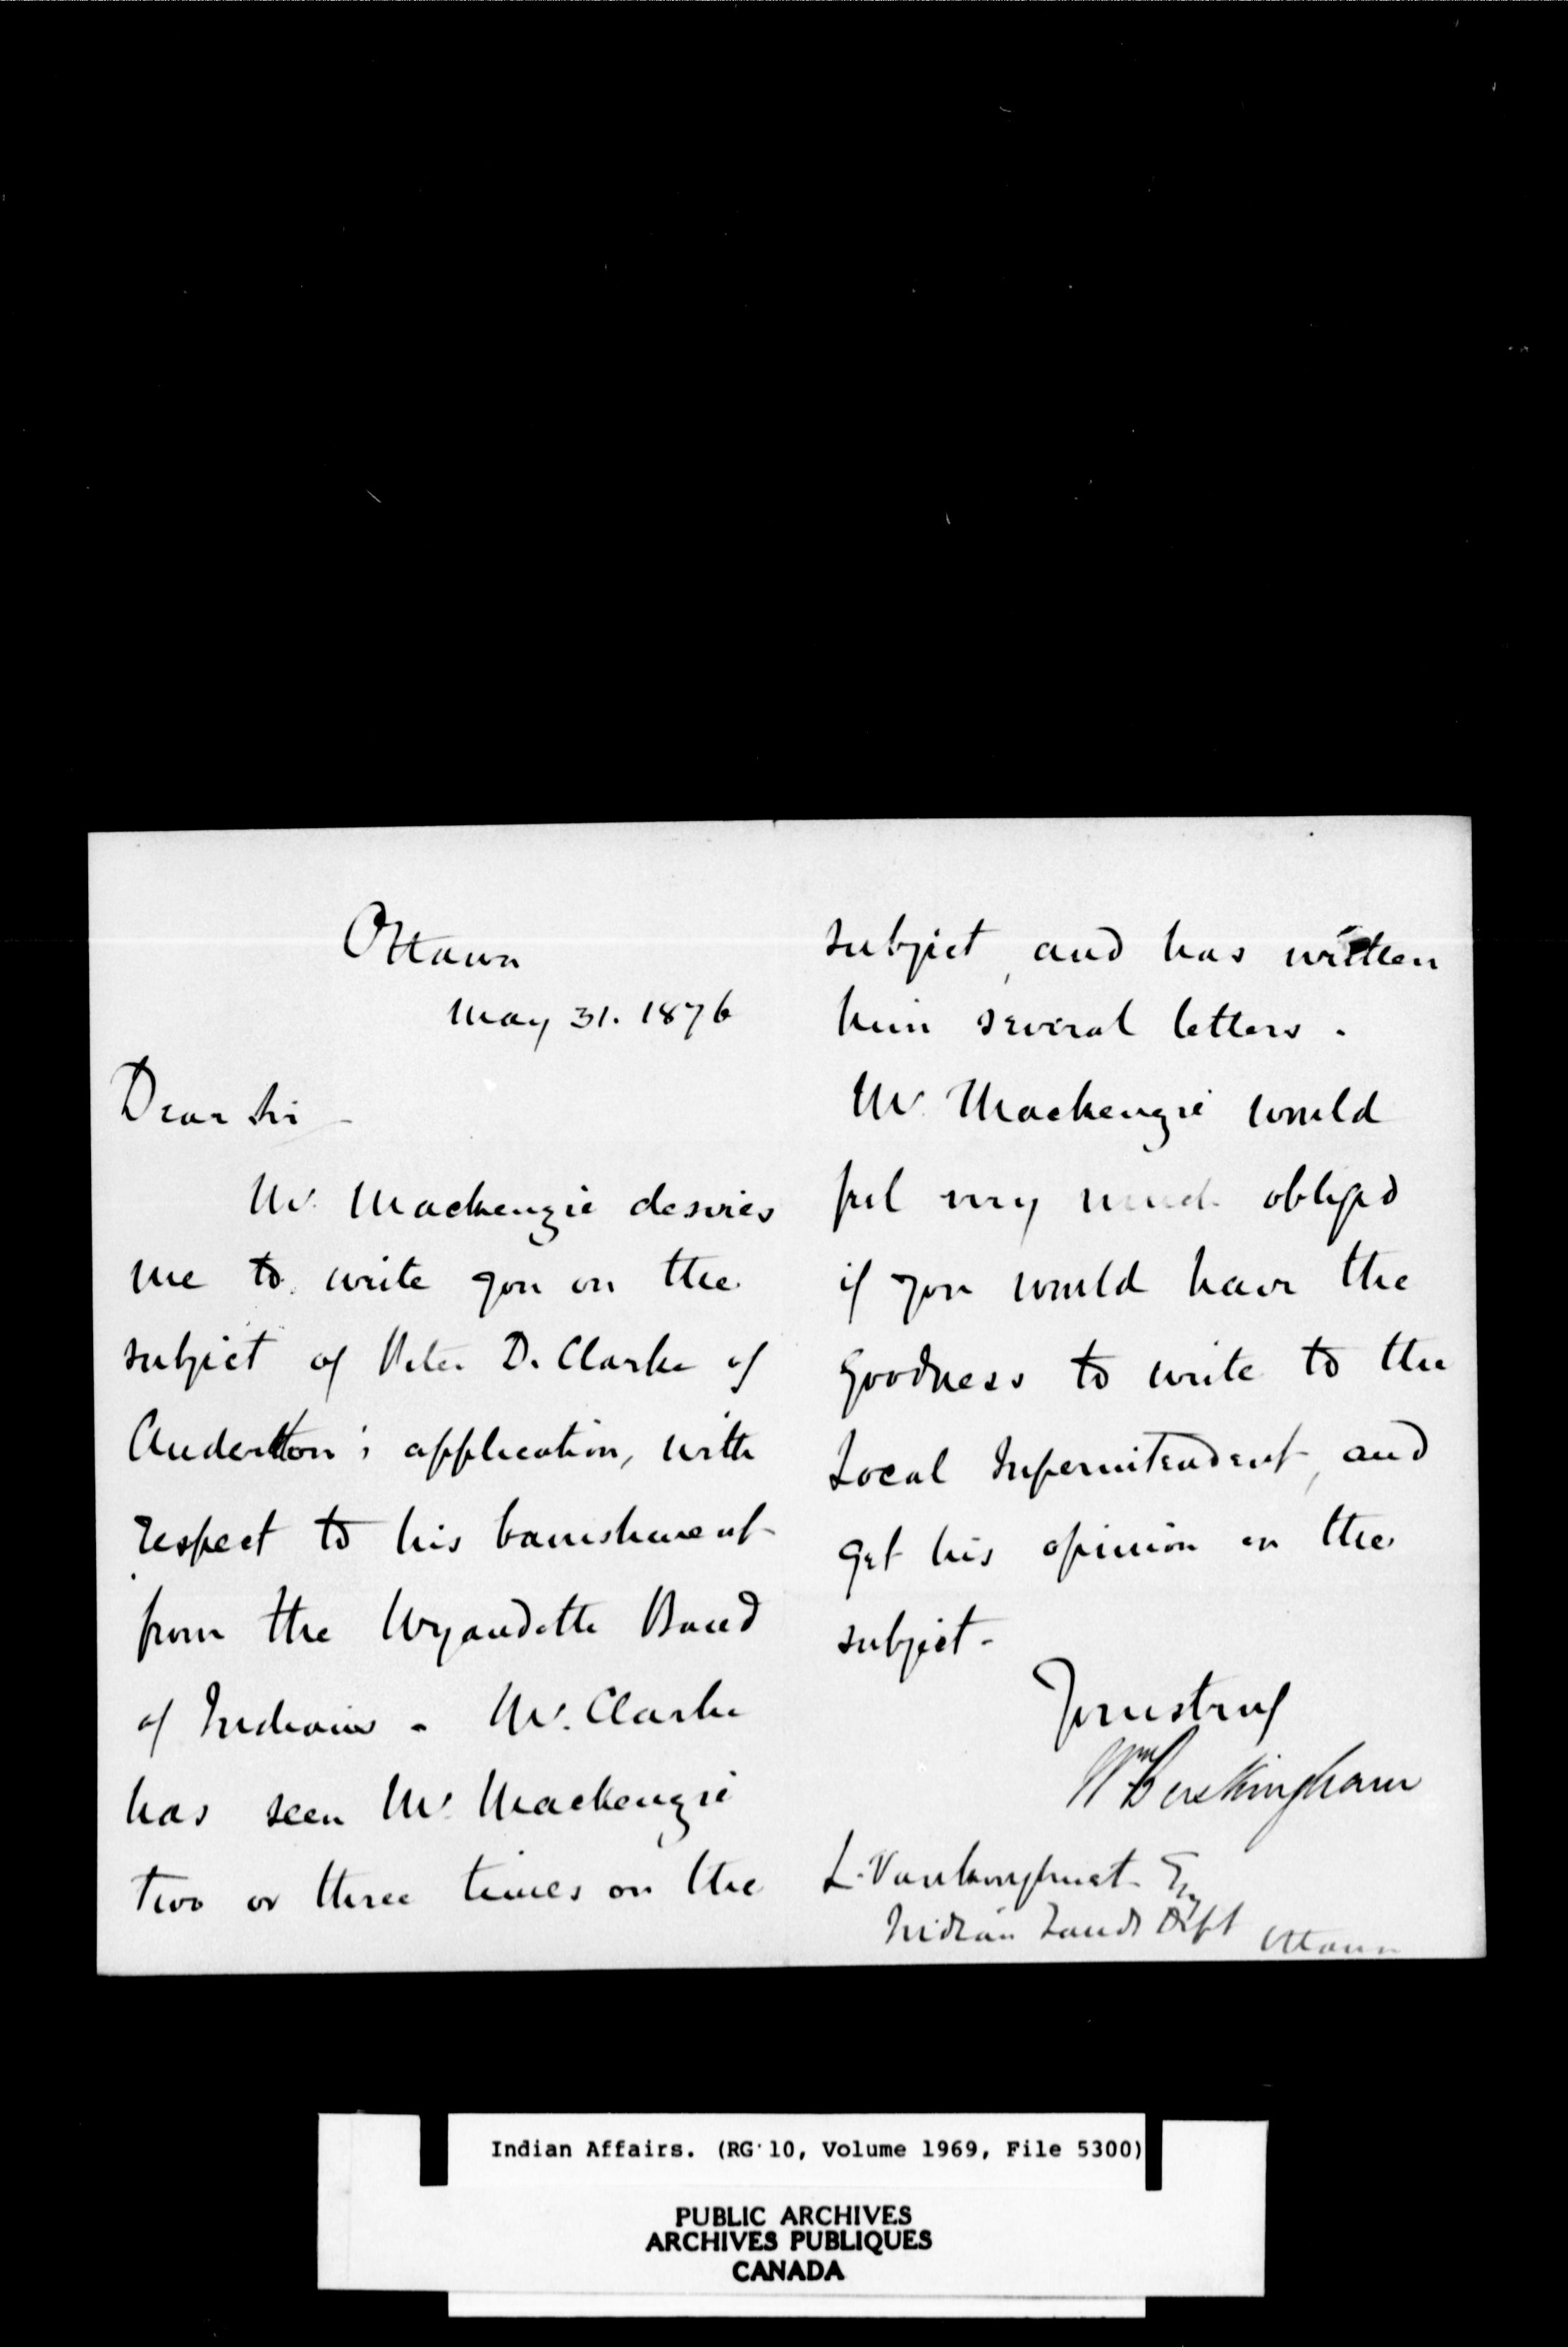 Ottawa
May 31. 1876
Dear Sir -
Mr. Mackenzie desires
me to write you on the
subject of Peter D. Clarke of
Anderdon's application, with
respect to his banishment
from the Wyandotte Band
of Indians - Mr. Clarke
has seen Mr. Mackenzie
two or three times on the
subject, and has written
him several letters.
Mr. Mackenzie would
feel very much obliged
if you would have the
goodness to write to the
Local Superintendent, and
get his opinion on the
subject -
Yours truly
Wm Buckingham
L. Vankoughnet Esq
Indian Lands Dept Ottawa
Indian Affairs. (RG 10, Volume 1969, File 5300)
PUBLIC ARCHIVES
ARCHIVES PUBLIQUES
CANADA